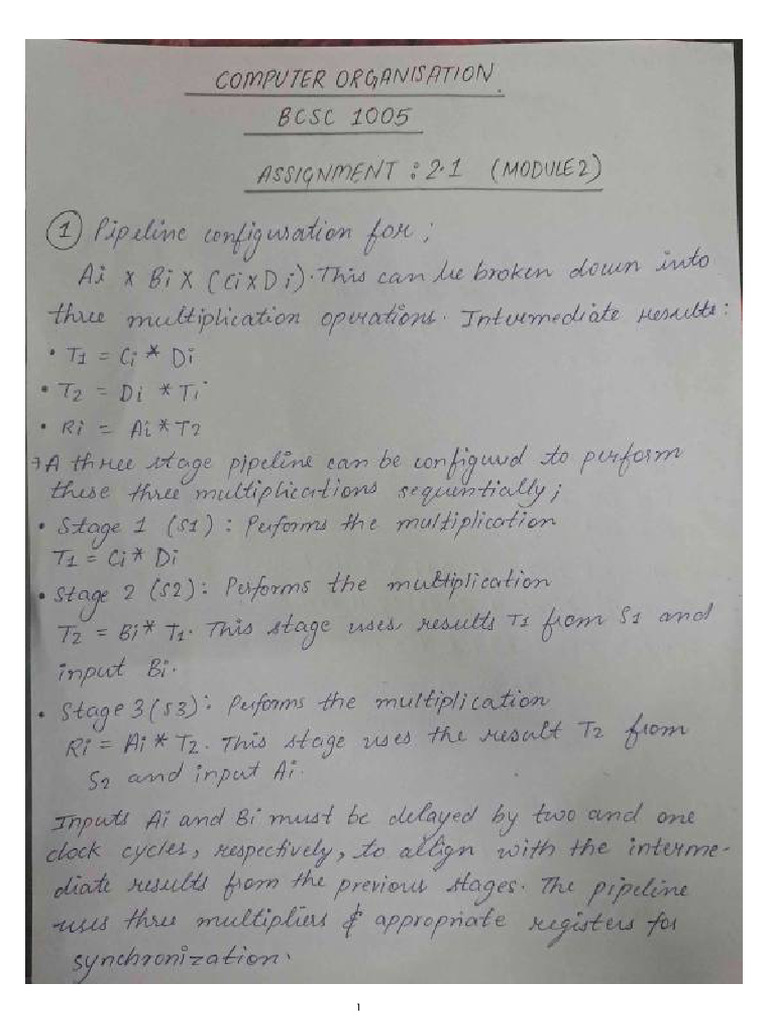 COMPUTER ORGANISATION
BCSC 1005
ASSIGNMENT : 2.1 (MODULE 2)
① Pipeline configuration for;
Ai x Bi x (Ci x Di). This can be broken down into
three multiplication operations. Intermediate results:
• T1 = Ci * Di
• T2 = Di * Ti
• Ri = Ai * T2
→ A three stage pipeline can be configured to perform
these three multiplications sequentially;
• Stage 1 (S1) : Performs the multiplication
T1 = Ci * Di
• Stage 2 (S2) : Performs the multiplication
T2 = Bi * T1. This stage uses results T1 from S1 and
input Bi.
• Stage 3 (S3) : Performs the multiplication
Ri = Ai * T2. This stage uses the result T2 from
S2 and input Ai.
Inputs Ai and Bi must be delayed by two and one
clock cycles, respectively, to align with the interme-
diate results from the previous stages. The pipeline
uses three multipliers & appropriate registers for
synchronization.
1